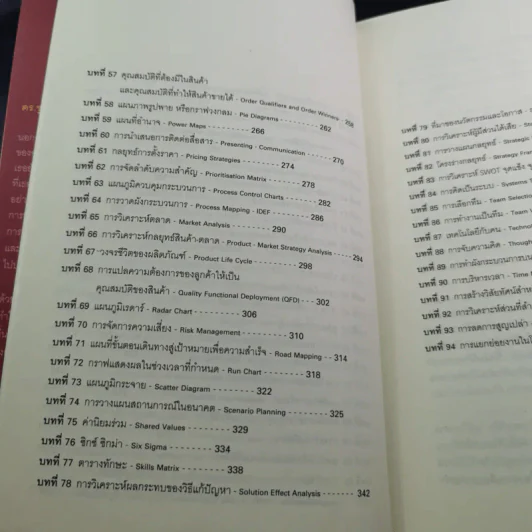 บทที่ 57 คุณสมบัติที่ต้องมีในสินค้า
และคุณสมบัติที่ทำให้สินค้าขายได้ - Order Qualifiers and Order-Winners - 258
บทที่ 58 แผนภาพรูปพาย หรือกราฟวงกลม - Pie Diagrams - - - - - - - - 262
บทที่ 59 แผนที่อำนาจ - Power Maps - - - - - - - - 266
บทที่ 60 การนำเสนอการติดต่อสื่อสาร - Presenting - Communication - - - - - - - - 270
บทที่ 61 กลยุทธ์การตั้งราคา - Pricing Strategies - - - - - - - - 274
บทที่ 62 การจัดลำดับความสำคัญ - Prioritisation Matrix - - - - - - - - 278
บทที่ 63 แผนภูมิควบคุมกระบวนการ - Process Control Charts - - - - - - - - 282
บทที่ 64 การวาดผังกระบวนการ - Process Mapping - IDEF - - - - - - - - 286
บทที่ 65 การวิเคราะห์ตลาด - Market Analysis - - - - - - - - 290
บทที่ 66 การวิเคราะห์กลยุทธ์สินค้า-ตลาด - Product - Market Strategy Analysis - - - - 294
บทที่ 67 วงจรชีวิตของผลิตภัณฑ์ - Product Life Cycle - - - - - - - - 298
บทที่ 68 การแปลความต้องการของลูกค้าให้เป็น
คุณสมบัติของสินค้า - Quality Functional Deployment (QFD) - - - 302
บทที่ 69 แผนภูมิเรดาร์ - Radar Chart - - - - - - - - 306
บทที่ 70 การจัดการความเสี่ยง - Risk Management - - - - - - - - 310
บทที่ 71 แผนที่ขั้นตอนเดินทางสู่เป้าหมายเพื่อความสำเร็จ - Road Mapping - - 314
บทที่ 72 กราฟแสดงผลในช่วงเวลาที่กำหนด - Run Chart - - - - - - - - 318
บทที่ 73 แผนภูมิกระจาย - Scatter Diagram - - - - - - - - 322
บทที่ 74 การวางแผนสถานการณ์ในอนาคต - Scenario Planning - - - - - - - - 325
บทที่ 75 ค่านิยมร่วม - Shared Values - - - - - - - - 329
บทที่ 76 ซิกซ์ ซิกม่า - Six Sigma - - - - - - - - 334
บทที่ 77 ตารางทักษะ - Skills Matrix - - - - - - - - 338
บทที่ 78 การวิเคราะห์ผลกระทบของวิธีแก้ปัญหา - Solution Effect Analysis - - - - - - 342
บทที่ 79 ที่มาของนวัตกรรมและโอกาส
บทที่ 80 การวิเคราะห์ผู้มีส่วนได้เสีย
บทที่ 81 การวางแผนกลยุทธ์ - Strategic
บทที่ 82 โครงร่างกลยุทธ์ - Strategy Fram
บทที่ 83 การวิเคราะห์ SWOT จุดแข็ง
บทที่ 84 การคิดเป็นระบบ - Systems
บทที่ 85 การเลือกทีม - Team Selectio
บทที่ 86 การทำงานเป็นทีม - Team
บทที่ 87 เทคโนโลยีกับคน - Techno
บทที่ 88 การจับความคิด - Though
บทที่ 89 การทำผังกระบวนการบน
บทที่ 90 การบริหารเวลา - Time
บทที่ 91 การสร้างวิสัยทัศน์
บทที่ 92 การวิเคราะห์ส่วนที่
บทที่ 93 การลดการสูญเปล่า
บทที่ 94 การแยกย่อยงานใน